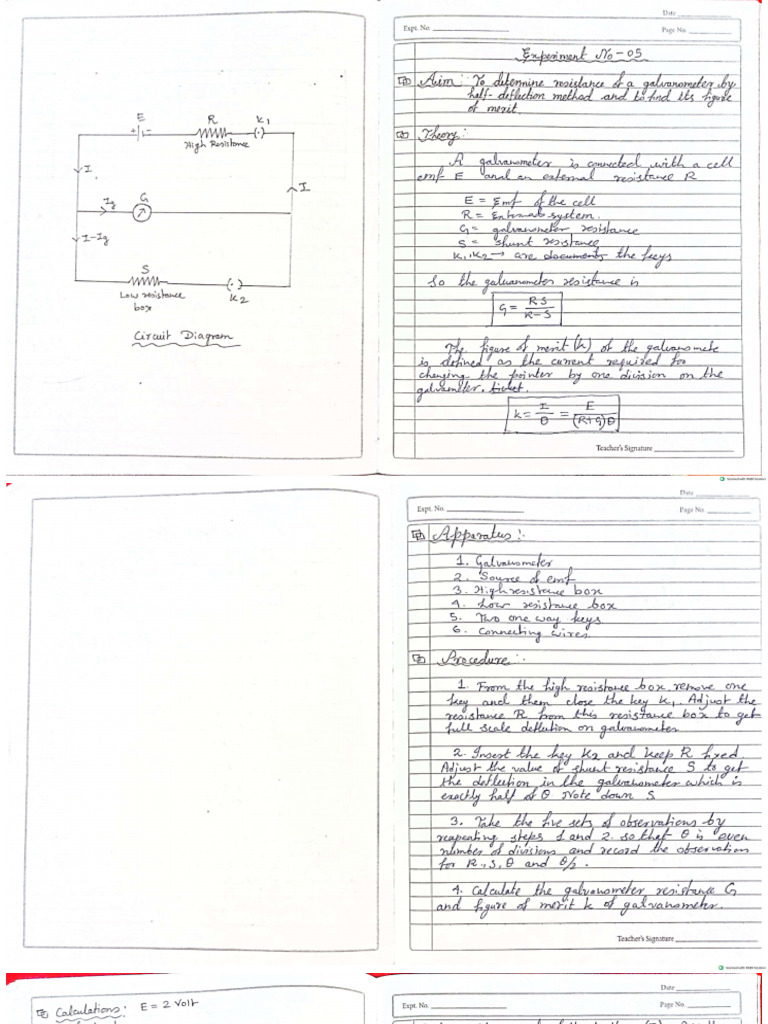 E
R
K₁
+ -
High Resistance
I
I
Ig
G
I-Ig
S
Low resistance
box
K2
Circuit Diagram
Date
Expt. No.
Page No.
Experiment No-05
Aim: To determine resistance of a galvanometer by
half-deflection method and to find its figure
of merit.
Theory:
A galvanometer is connected with a cell
emf E and an external resistance R
E = Emf of the cell
R = External system.
G = galvanometer resistance
S = shunt resistance
K₁, K2 → are documents the keys
So the galvanometer resistance is
G = RS / R-S
The figure of merit (k) of the galvanomete
is defined as the current required for
changing the pointer by one division on the
galvanometer.
k = I/θ = E/(R+G)θ
Teacher's Signature
Date
Expt. No.
Page No.
Apparatus:
1. Galvanometer
2. Source of emf
3. High resistance box
4. Low resistance box
5. Two one way keys
6. Connecting wires
Procedure:
1. From the high resistance box remove one
key and them close the key K₁. Adjust the
resistance R from this resistance box to get
full scale deflection on galvanometer
2. Insert the key K2 and keep R fixed.
Adjust the value of shunt resistance S to get
the deflection in the galvanometer which is
exactly half of θ Note down S.
3. Take the five sets of observations by
repeating steps 1 and 2. so that θ is even
number of divisions and record the observation
for R, S, θ and θ/2.
4. Calculate the galvanometer resistance G
and figure of merit k of galvanometer.
Teacher's Signature
Calculations: E = 2 Volt
Date
Expt. No.
Page No.